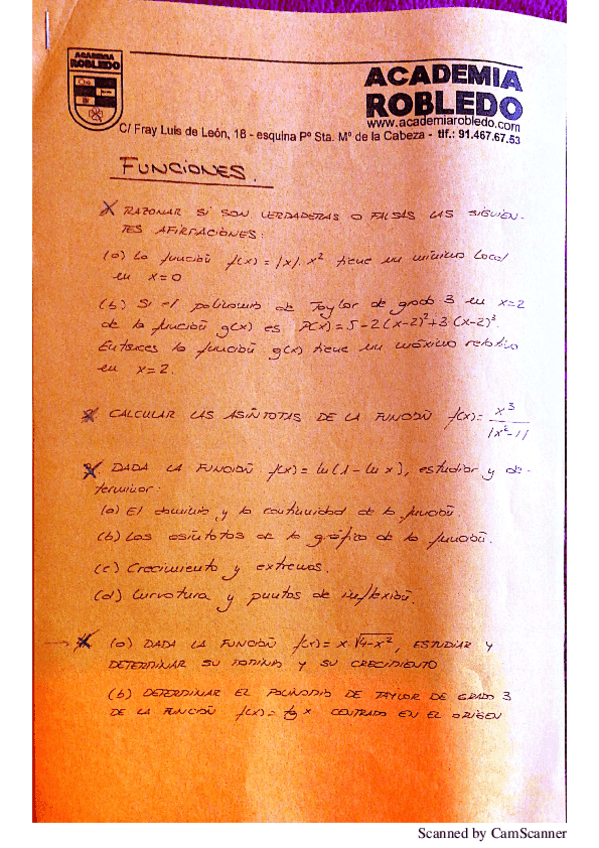 ACADEMIA
ROBLEDO
ACADEMIA
ROBLEDO
www.academiarobledo.com
C/ Fray Luis de León, 18 - esquina Pº Sta. Mª de la Cabeza - tlf.: 91.467.67.53
FUNCIONES.
RAZONAR SI SON VERDADERAS O FALSAS LAS SIGUIEN-
TES AFIRMACIONES:
(a) La función f(x) = |x|. x² tiene un mínimo local
en x=0
(b) Si el polinomio de Taylor de grado 3 en x=2
de la función g(x) es P(x) = 5-2(x-2)²+3(x-2)³.
Entonces la función g(x) tiene un máximo relativo
en x=2.
CALCULAR LAS ASÍNTOTAS DE LA FUNCIÓN f(x) = x³/|x²-1|
DADA LA FUNCIÓN f(x) = ln(1 - ln x), estudiar y de-
terminar:
(a) El dominio y la continuidad de la función.
(b) Las asíntotas de la gráfica de la función.
(c) Crecimiento y extremos.
(d) Curvatura y puntos de inflexión.
(a) DADA LA FUNCIÓN f(x) = x √4-x², ESTUDIAR Y
DETERMINAR SU DOMINIO Y SU CRECIMIENTO
(b) DETERMINAR EL POLINOMIO DE TAYLOR DE GRADO 3
DE LA FUNCIÓN f(x) = tg x CENTRADO EN EL ORIGEN
Scanned by CamScanner